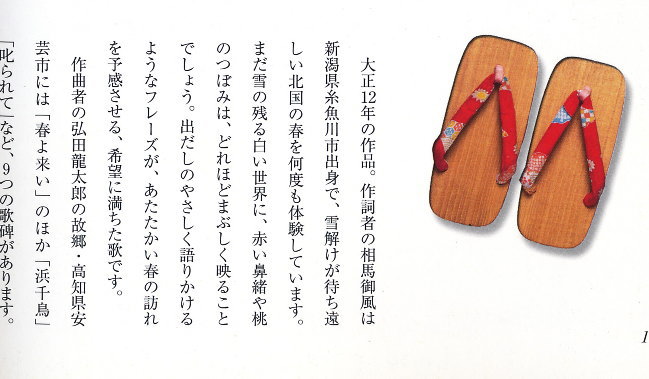 大正12年の作品。作詞者の相馬御風は
新潟県糸魚川市出身で、雪解けが待ち遠
しい北国の春を何度も体験しています。
まだ雪の残る白い世界に、赤い鼻緒や桃
のつぼみは、どれほどまぶしく映ること
でしょう。出だしのやさしく語りかける
ようなフレーズが、あたたかい春の訪れ
を予感させる、希望に満ちた歌です。
作曲者の弘田龍太郎の故郷・高知県安
芸市には「春よ来い」のほか「浜千鳥」
「叱られて」など、9つの歌碑があります。
1